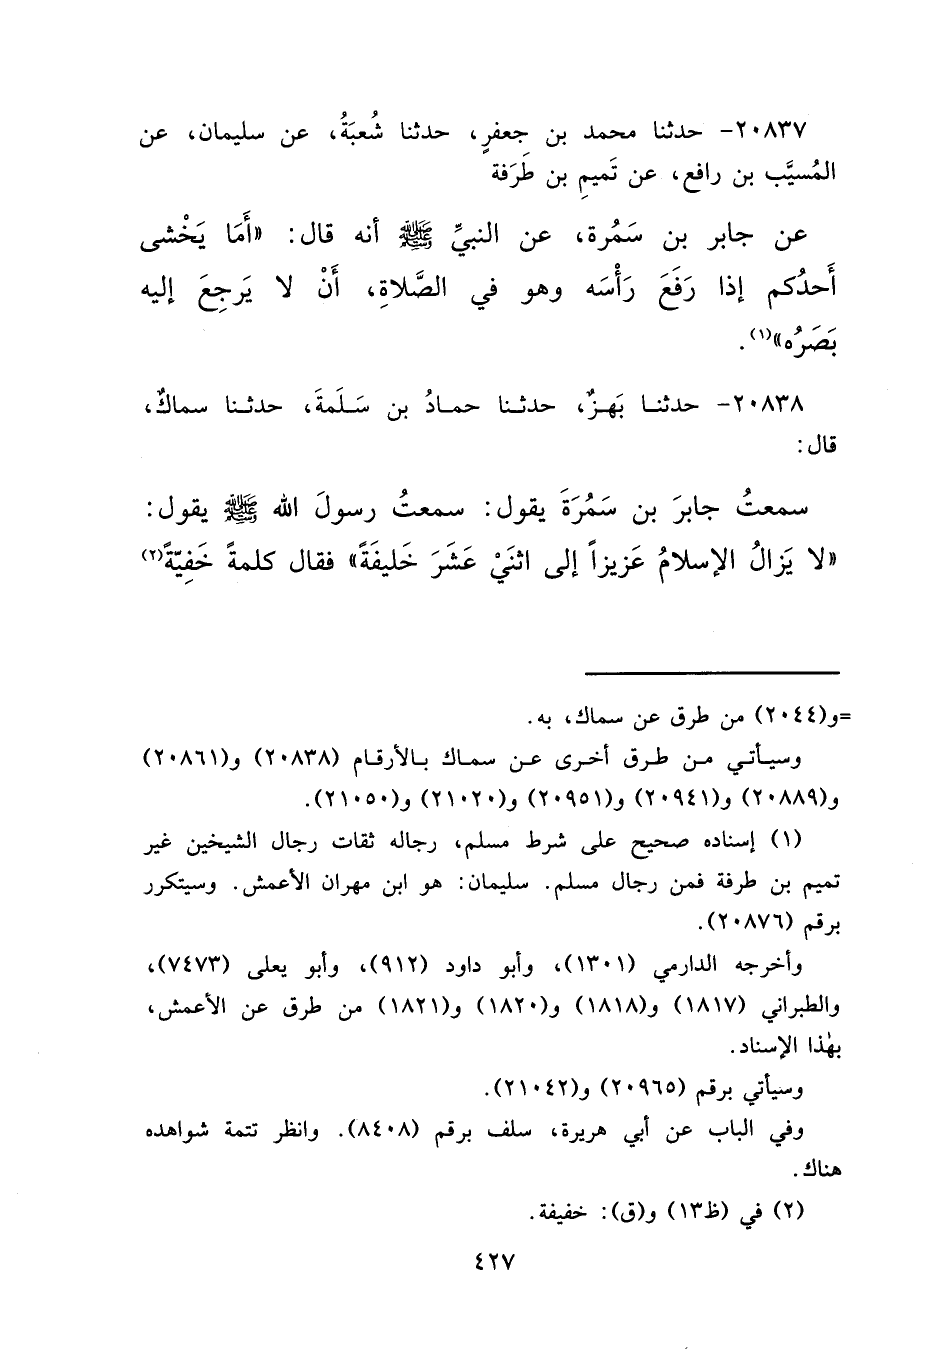 ٢٠٨٣٧- حدثنا محمد بن جعفرٍ، حدثنا شُعبَةُ، عن سليمان، عن
المُسيَّب بن رافع، عن تَميمِ بن طَرَفة
عن جابر بن سَمُرة، عن النبيِّ ﷺ أنه قال: «أَمَا يَخْشى
أَحدُكم إذا رَفَعَ رَأْسَه وهو في الصَّلاةِ، أَنْ لا يَرجِعَ إليه
بَصَرُه»(١).
٢٠٨٣٨- حدثنـا بَهـزٌ، حدثنـا حمـادُ بن سَـلَمةَ، حدثنـا سماكٌ،
قال:
سمعتُ جابرَ بن سَمُرَةَ يقول: سمعتُ رسولَ الله ﷺ يقول:
«لا يَزالُ الإسلامُ عَزيزاً إلى اثنَيْ عَشَرَ خَليفَةً» فقال كلمةً خَفِيّةً(٢)
=و(٢٠٤٤) من طرق عن سماك، به.
وسيـأتـي مـن طـرق أخـرى عـن سمـاك بـالأرقـام (٢٠٨٣٨) و(٢٠٨٦١)
و(٢٠٨٨٩) و(٢٠٩٤١) و(٢٠٩٥١) و(٢١٠٢٠) و(٢١٠٥٠).
(١) إسناده صحيح على شرط مسلم، رجاله ثقات رجال الشيخين غير
تميم بن طرفة فمن رجال مسلم. سليمان: هو ابن مهران الأعمش. وسيتكرر
برقم (٢٠٨٧٦).
وأخرجه الدارمي (١٣٠١)، وأبو داود (٩١٢)، وأبو يعلى (٧٤٧٣)،
والطبراني (١٨١٧) و(١٨١٨) و(١٨٢٠) و(١٨٢١) من طرق عن الأعمش،
بهٰذا الإسناد.
وسيأتي برقم (٢٠٩٦٥) و(٢١٠٤٢).
وفي الباب عن أبي هريرة، سلف برقم (٨٤٠٨). وانظر تتمة شواهده
هناك.
(٢) في (ظ١٣) و(ق): خفيفة.
٤٢٧